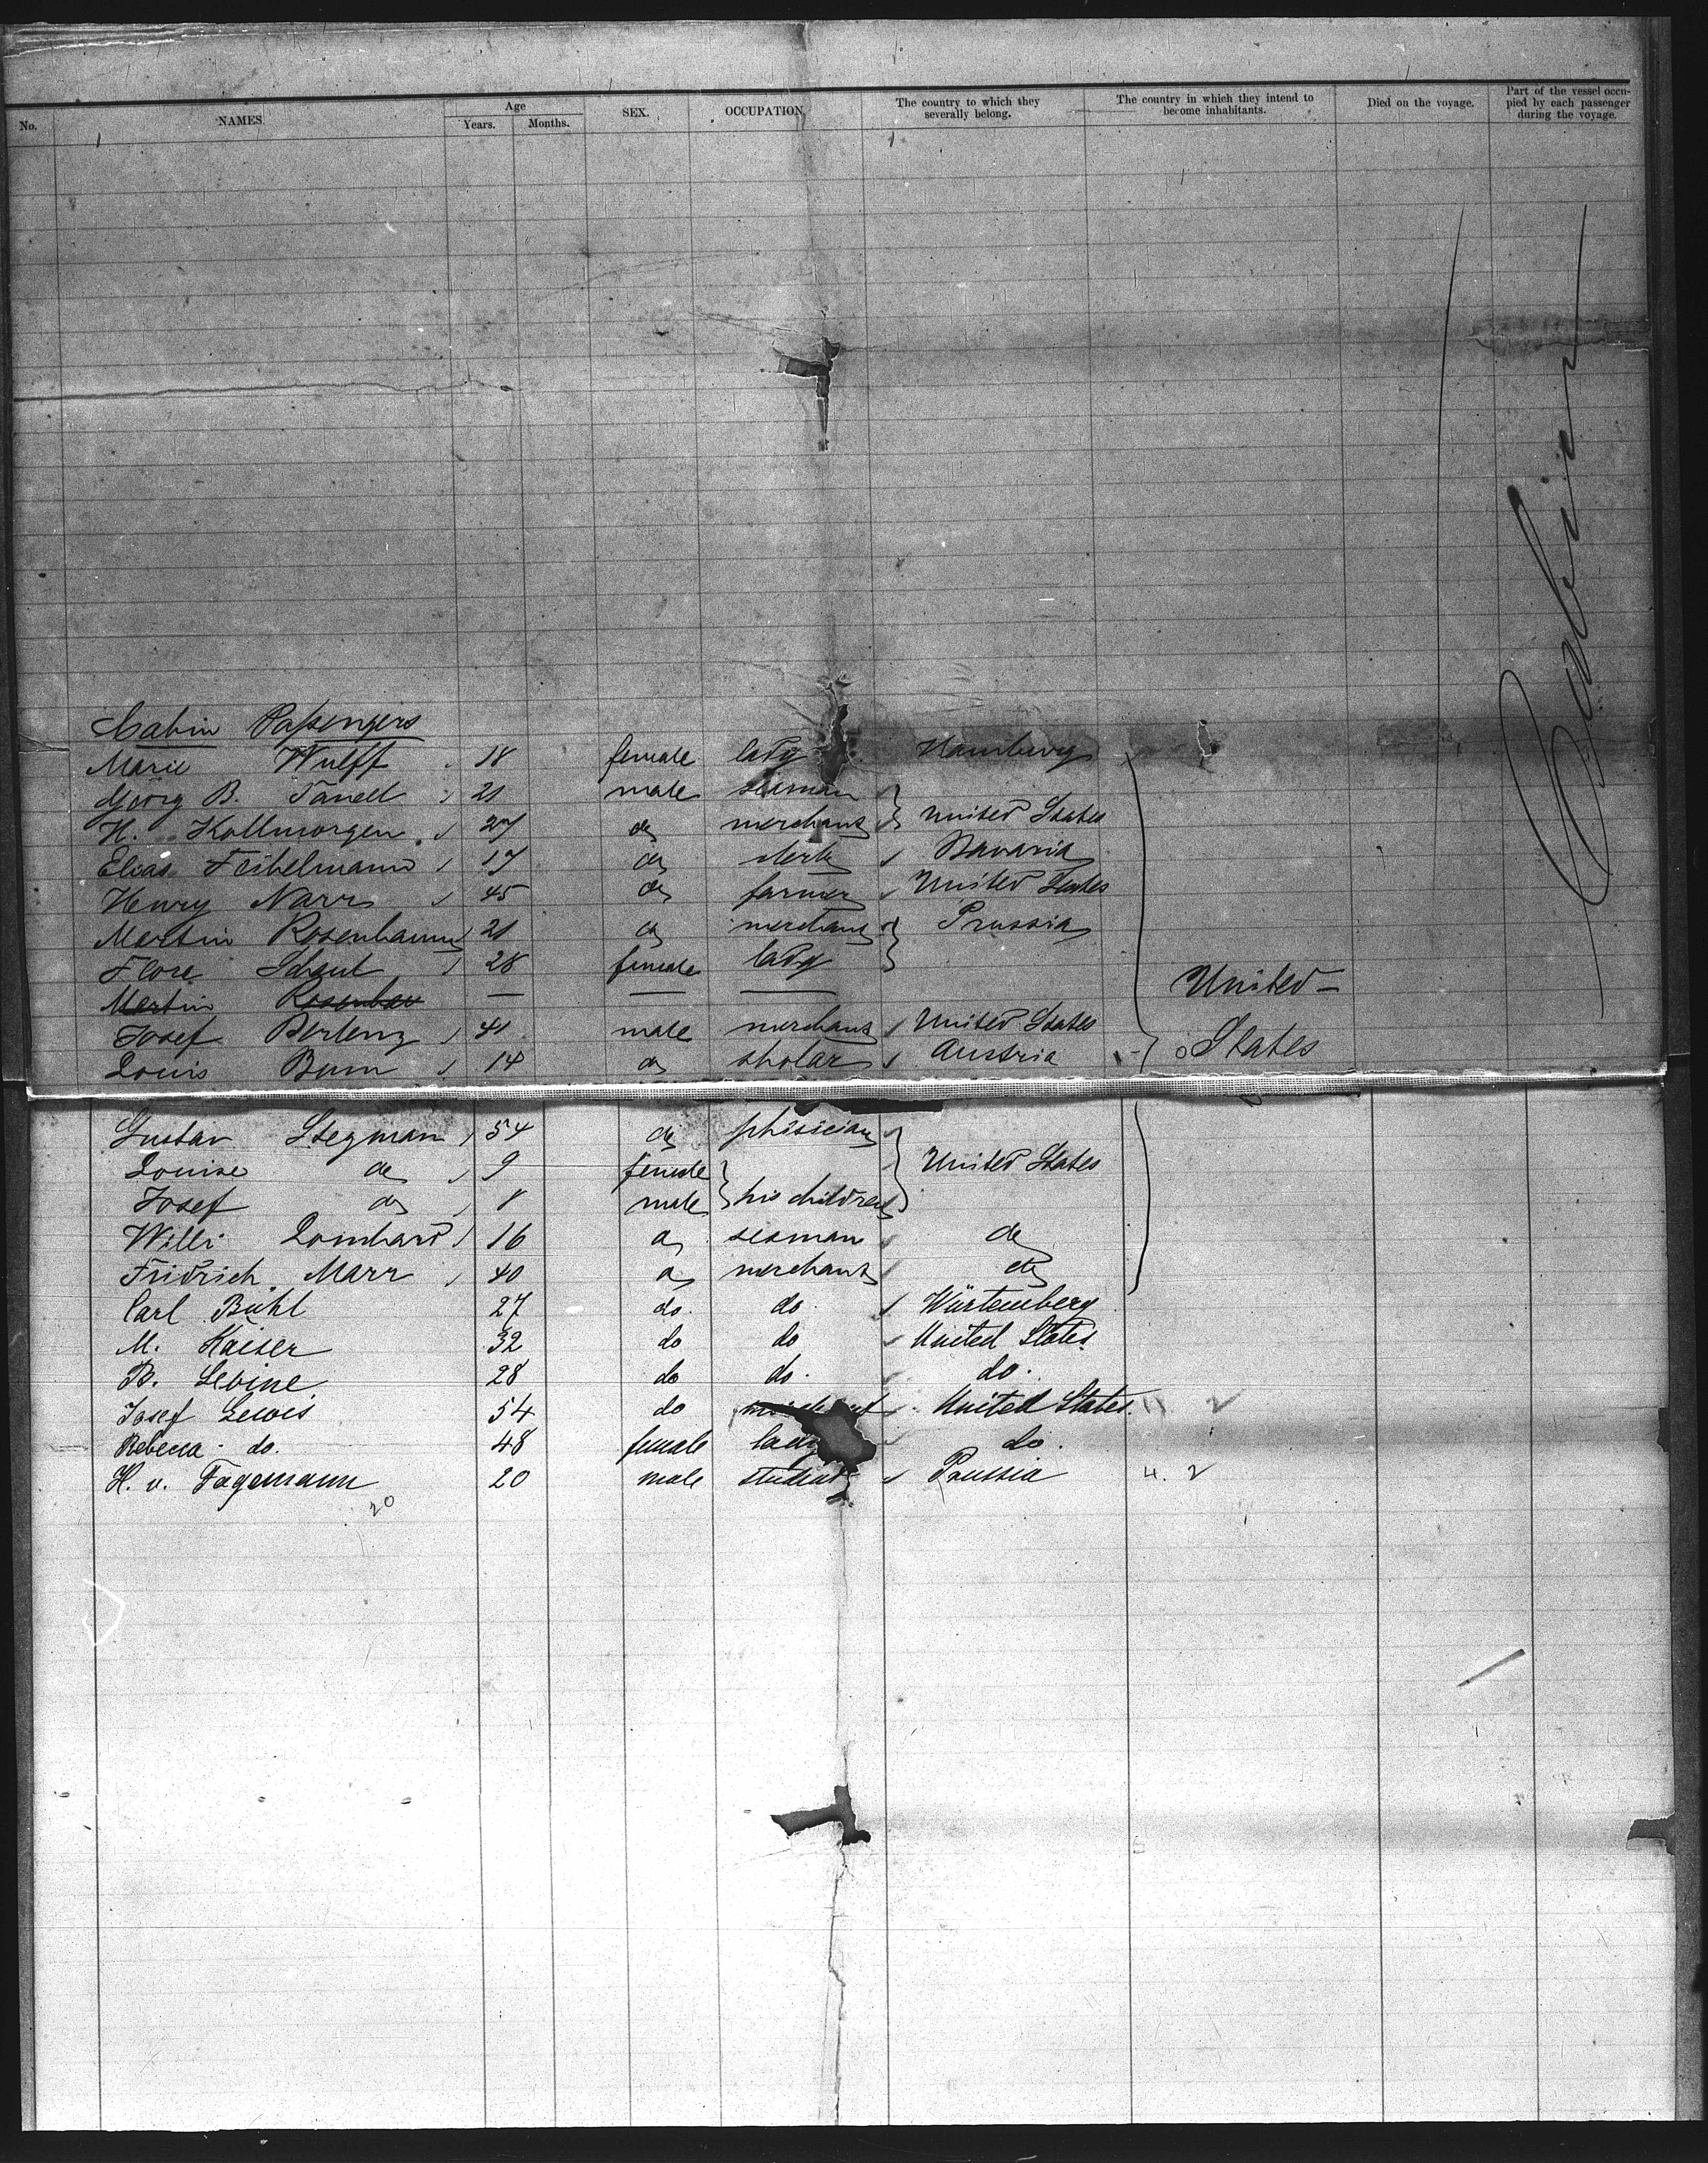 No. NAMES. Age Years. Months. SEX. OCCUPATION. The country to which they severally belong. The country in which they intend to become inhabitants. Died on the voyage. Part of the vessel occupied by each passenger during the voyage.
Cabin
Cabin Passengers
Marie Wulff 18 female lady Hamburg
Georg B. 21 male seaman
H. Kollmorgen 27 do merchant United States
Elias 17 do clerk Bavaria
Henry Narr 45 do farmer United States
Martin Rosenbaum 21 do merchant Prussia
Flora 28 female lady
Martin Rosenbau — — —
United –
Josef Berlenz 41 male merchant United States
Louis Bum 14 do sholar Austria States
Gustav Stegman 54 do phisician
Louise do 9 female United States
Josef do 8 male his children
Willi Lomhard 16 do seaman do
Fridrich Marr 40 do merchant do
Carl Bühl 27 do. do. Würtemberg
M. Kaiser 32 do do United States.
B. Levine 28 do do. do.
Josef Lewis 54 do United States. 11 2
Rebecca do. 48 female lady do.
H. v. Fagemann 20 male student Prussia 4. 2
20